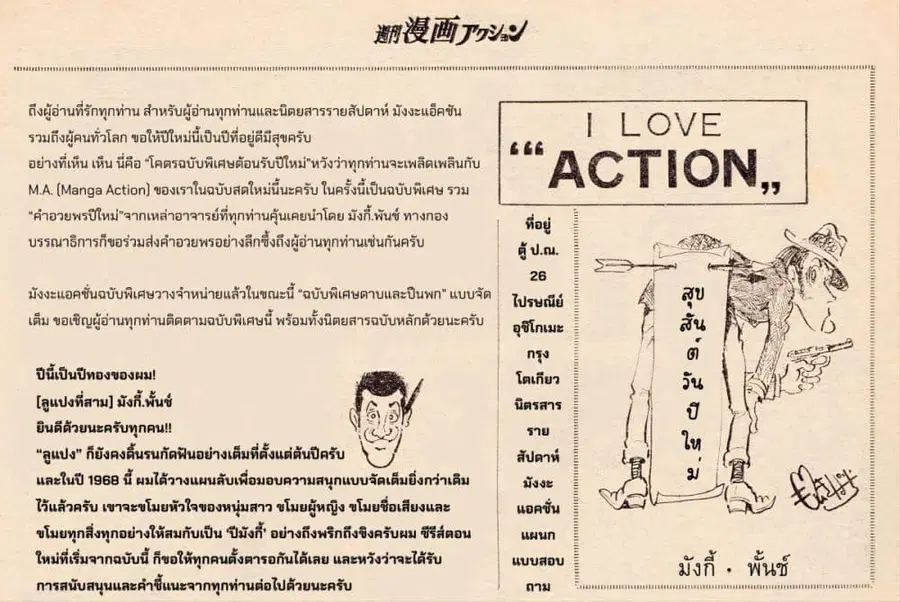 週刊漫画アクション
ถึงผู้อ่านที่รักทุกท่าน สำหรับผู้อ่านทุกท่านและนิตยสารรายสัปดาห์ มังงะแอ็คชัน
รวมถึงผู้คนทั่วโลก ขอให้ปีใหม่นี้เป็นปีที่อยู่ดีมีสุขครับ
อย่างที่เห็น เห็น นี่คือ “โคตรฉบับพิเศษต้อนรับปีใหม่”หวังว่าทุกท่านจะเพลิดเพลินกับ
M.A. (Manga Action) ของเราในฉบับสดใหม่นี้นะครับ ในครั้งนี้เป็นฉบับพิเศษ รวม
“คำอวยพรปีใหม่”จากเหล่าอาจารย์ที่ทุกท่านคุ้นเคยนำโดย มังกี้.พันช์ ทางกอง
บรรณาธิการก็ขอร่วมส่งคำอวยพรอย่างลึกซึ้งถึงผู้อ่านทุกท่านเช่นกันครับ
มังงะแอคชั่นฉบับพิเศษวางจำหน่ายแล้วในขณะนี้ “ฉบับพิเศษดาบและปืนพก” แบบจัด
เต็ม ขอเชิญผู้อ่านทุกท่านติดตามฉบับพิเศษนี้ พร้อมทั้งนิตยสารฉบับหลักด้วยนะครับ
ปีนี้เป็นปีทองของผม!
[ลูแปงที่สาม] มังกี้.พั้นช์
ยินดีด้วยนะครับทุกคน!!
“ลูแปง” ก็ยังคงดิ้นรนกัดฟันอย่างเต็มที่ตั้งแต่ต้นปีครับ
และในปี 1968 นี้ ผมได้วางแผนลับเพื่อมอบความสนุกแบบจัดเต็มยิ่งกว่าเดิม
ไว้แล้วครับ เขาจะขโมยหัวใจของหนุ่มสาว ขโมยผู้หญิง ขโมยชื่อเสียงและ
ขโมยทุกสิ่งทุกอย่างให้สมกับเป็น ‘ปีมังกี้’ อย่างถึงพริกถึงขิงครับผม ซีรีส์ตอน
ใหม่ที่เริ่มจากฉบับนี้ ก็ขอให้ทุกคนตั้งตารอกันได้เลย และหวังว่าจะได้รับ
การสนับสนุนและคำชี้แนะจากทุกท่านต่อไปด้วยนะครับ
I LOVE
“‘ACTION„
ที่อยู่
ตู้ ป.ณ.
26
ไปรษณีย์
อุชิโกเมะ
กรุง
โตเกียว
นิตรสาร
ราย
สัปดาห์
มังงะ
แอคชั่น
แผนก
แบบสอบ
ถาม
สุข
สัน
ต์
วัน
ปี
ให
ม่
มังกี้ · พั้นช์